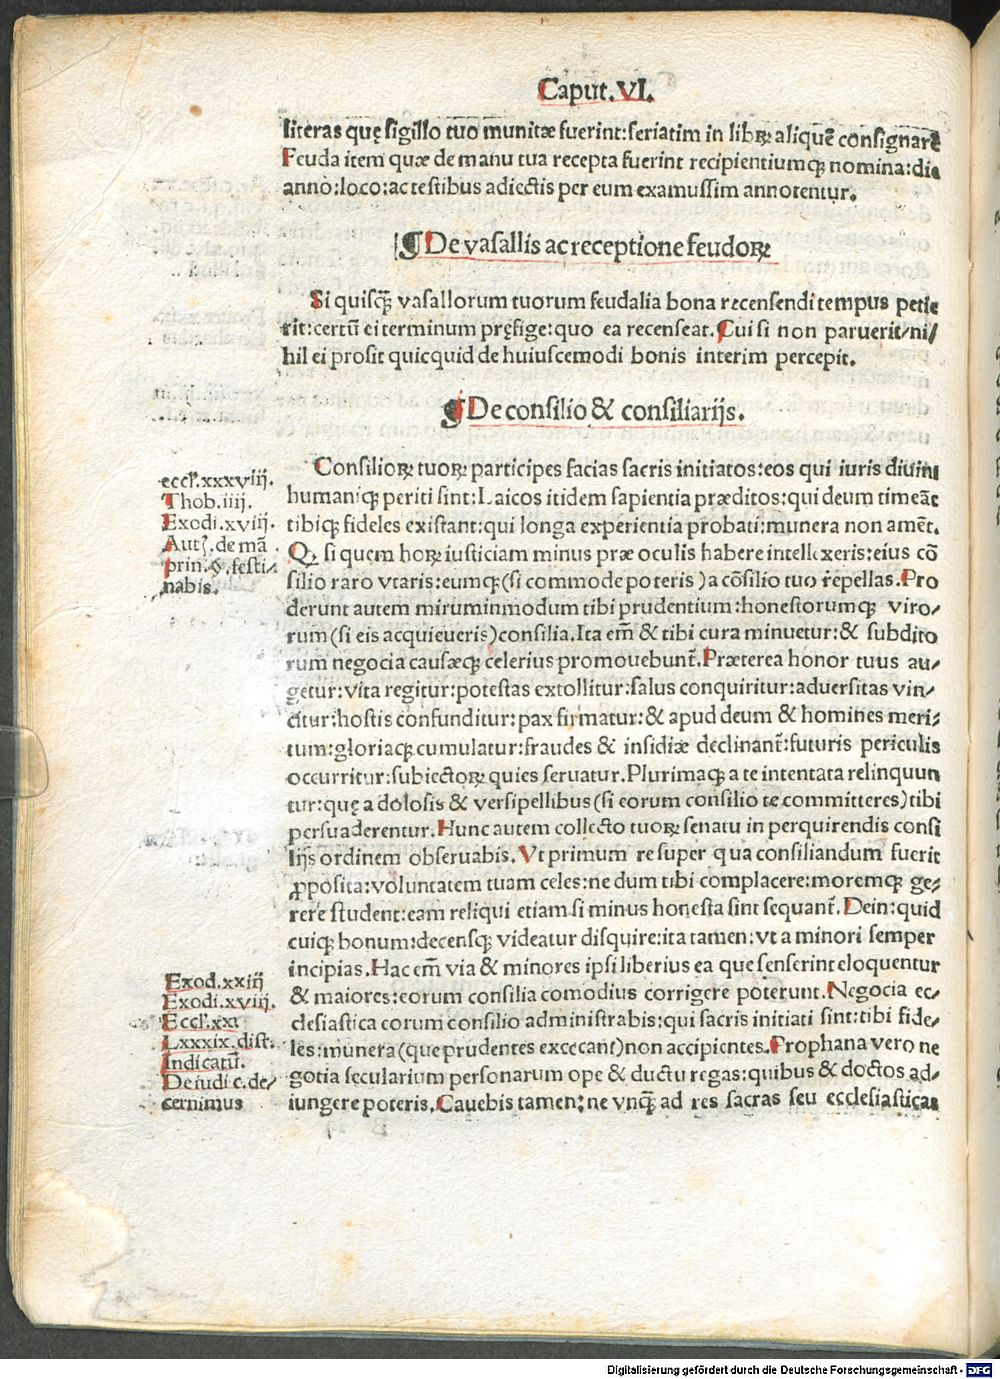 Caput.VI.
literas quę sigillo tuo munitæ fuerint:seriatim in libꝝ aliquẽ consignare
Feuda item quæ de manu tua recepta fuerint recipientiumqꝫ nomina:die
anno:loco:ac testibus adiectis per eum examussim annotentur.
¶De vasallis ac receptione feudoꝝ
Si quisqꝫ vasallorum tuorum feudalia bona recensendi tempus petie
rit:certũ ei terminum pręfige:quo ea recenseat.Cui si non paruerit/ni/
hil ei prosit quicquid de huiuscemodi bonis interim percepit.
¶De consilio & consiliarijs.
Consilioꝝ tuoꝝ participes facias sacris initiatos:eos qui iuris diuini
humaniqꝫ periti sint:Laicos itidem sapientia præditos:qui deum timeãt
tibiqꝫ fideles existant:qui longa experientia probati:munera non amẽt.
Qꝫ si quem hoꝝ iusticiam minus præ oculis habere intellexeris:eius cõ
silio raro vtaris:eumqꝫ(si commode poteris )a cõsilio tuo repellas.Pro
derunt autem miruminmodum tibi prudentium:honestorumqꝫ viro/
rum(si eis acquieueris)consilia.Ita em̃ & tibi cura minuetur:& subdito
rum negocia causæqꝫ celerius promouebunt̃.Præterea honor tuus au/
getur:vita regitur:potestas extollitur:salus conquiritur:aduersitas vin/
citur:hostis confunditur:pax firmatur:& apud deum & homines meri/
tum:gloriaqꝫ cumulatur:fraudes & insidiæ declinant̃:futuris periculis
occurritur:subiectoꝝ quies seruatur.Plurimaqꝫ a te intentata relinquun
tur:quę a dolosis & versipellibus(si eorum consilio te committeres)tibi
persuaderentur.Hunc autem collecto tuoꝝ senatu in perquirendis consi
lijs ordinem obseruabis.Vt primum re super qua consiliandum fuerit
ꝓposita:voluntatem tuam celes:ne dum tibi complacere:moremqꝫ ge/
rere student:eam reliqui etiam si minus honesta sint sequant̃.Dein:quid
cuiqꝫ bonum:decensqꝫ videatur disquire:ita tamen:vt a minori semper
incipias.Hac em̃ via & minores ipsi liberius ea que senserint eloquentur
& maiores:eorum consilia comodius corrigere poterunt.Negocia ec/
clesiastica eorum consilio administrabis:qui sacris initiati sint:tibi fide/
les:munera(que prudentes excecant)non accipientes.Prophana vero ne
gotia secularium personarum ope & ductu regas:quibus & doctos ad/
iungere poteris.Cauebis tamen:ne vnqꝫ ad res sacras seu ecclesiasticas
eccl̃.xxxviij.
Thob.iiij.
Exodi.xviij.
de mã
prin. festi/
nabis.
Exod.xxiij
Exodi.xviij.
Eccl̃.xxv
Lxxxix.dist.
Indicatũ.
De iudic.de/
cernimus
Digitalisierung gefördert durch die Deutsche Forschungsgemeinschaft - DFG